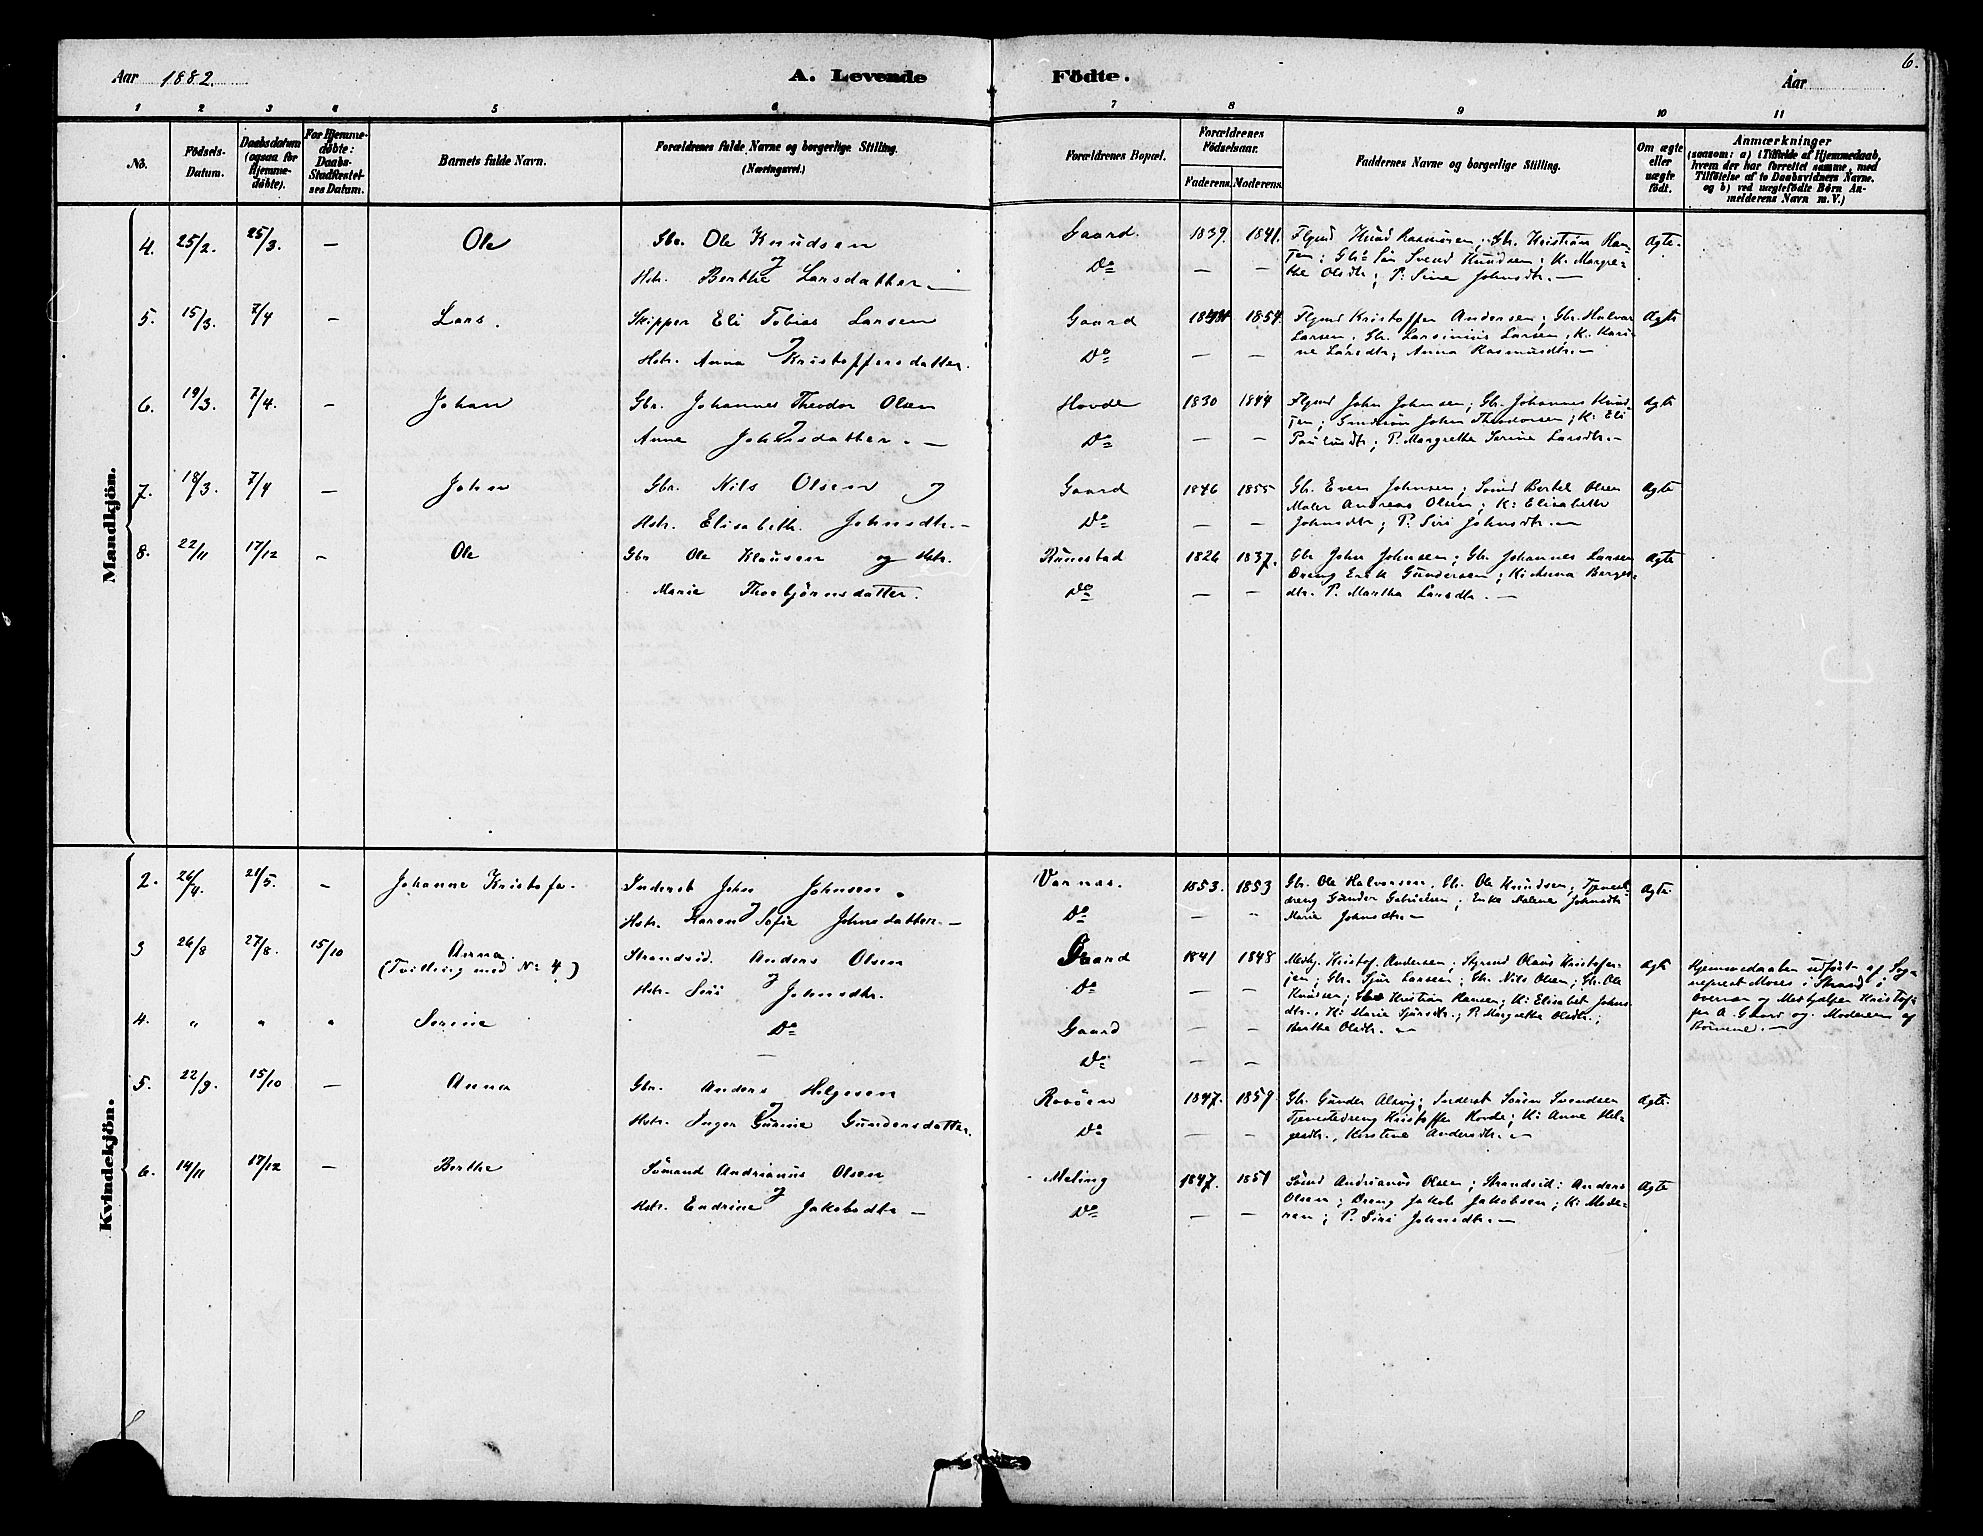 6.
Aar 1882.
A. Levende Födte.
Aar
1 2 3 4 5 6 7 8 9 10 11
No.
Födsels-Datum.
Daabsdatum (ogsaa for Hjemme-döbte).
For Hjemme-döbte: Daabs-Stadfæstel-ses Datum.
Barnets fulde Navn.
Forældrenes fulde Navne og borgerlige Stilling.
(Næringsvei.)
Forældrenes Bopæl.
Forældrenes Födselsaar.
Faderens. Moderens.
Faddernes Navne og borgerlige Stilling.
Om ægte eller uægte födt.
Anmærkninger
(saasom: a) i Tilfælde af Hjemmedaab,
hvem der har forrettet samme, med
Tilföielse af to Daabsvidners Navne.
og b) ved uægtefödte Börn An-
melderens Navn m. V.)
Mandkjön.
4. 25/2. 25/3. — Ole Gbr. Ole Knudsen og Gaard. 1839. 1841. Flgmd Knud Rasmusen; Gbr. Kristian Han- Ægte.
Hstr. Berthe Larsdatter. — Do — — sen; Svend Knudsen; K: Margre-
the Olsdtr; P: Sine Johnsdtr. —
5. 15/3. 7/4 — Lars. Skipper Eli Tobias Larsen og Gaard 1854. Flgmd Kristoffer Andersen; Gbr. Halvar Ægte
Larsen, Gbr. Larsinius Larsen; K: Kari-
Hstr. Anna Kristoffersdatter. Do — — ne Larsdtr; Anna Rasmusdtr. —
6. 19/3. 7/4. — Johan Gbr. Johannes Theodor Olsen og Hovde 1830 1844 Flgmd John Johnsen; Gbr. Johannes Knud- Ægte
sen; John Theodorsen; K: Eli
Anne Johnsdatter. — Do — — Paulusdtr; P. Margrethe Serine Larsdtr. —
7. 18/3. 7/4 — John Gbr. Nils Olsen og Gaard 1846 1855 Gbr. Even Johnsen; Sömd Bertel Olsen Ægte
Maler Andreas Olsen; K: Elisabeth
Hstr. Elisabeth Johnsdtr. — Do — — Johnsdtr; P: Siri Johnsdtr. —
8. 22/11 17/12 — Ole Gbr Ole Klausen og Hstr. Runestad 1826 1837. Gbr John Johnsen; Gbr. Johannes Larsen Ægte
Dreng Erik Gundersen; K: Anna Borges-
Marie Thorbjörnsdatter. Do — — dtr. P. Martha Larsdtr. —
Kvindekjön.
2. 26/4. 21/5. — Johanne Kristofa. Inderst John Johnsen og Varnas. 1853. 1853 Gbr. Ole Halvorsen, Gbr. Ole Knudsen, Tjeneste- Ægte.
dreng Gunder Gabrielsen; Enke Malene Johnsdtr
Hstr. Karen Sofie Johnsdatter. — Do — " Marie Johnsdtr. —
3 26/8 27/8. 15/10 Anna. Strandsid. Anders Olsen og Gaard 1841 1848 Medhj. Kristof. Andersen, Olaus Kristofer- Ægte Hjemmedaaben udfört af Sog-
(Tvilling med No 4) sen; Gbr. Sjur Larsen; Gbr. Nils Olsen; Gbr. Ole neprest Moses i Skaard i
Hstr. Siri Johnsdtr. Do — — Knudsen; Gbr Kristian Hansen; K: Elisabet Johns- overvær og Medhjelper Kristof-
4. " " " Serine Do Gaard — — dtr. K: Marie Sjursdtr; P: Margrethe Olsdtr; fer A. Gaard og Moderen af
Berthe Olsdtr. — Börnene. —
— Do — —
5. 22/9. 15/10 — Anna Gbr. Anders Helgesen og 1847. 1859 Gbr. Gunder Alsvig; Inderst Sörén Svendsen Ægte.
Tjenestedreng Kristoffer Hovde; K: Anne Hel-
Hstr. Inger Gurine Gundersdatter. Do — — gesdtr., Kirstine Andersdtr. —
6. 14/11 17/12 — Berthe Sömand Andrianus Olsen og Meling 1847. 1851 Sömd Andrianus Olsen; Strandsid: Anders Ægte
Olsen; Dreng Jakob Jakobsen; K: Mode-
Hstr. Endrine Jakobsdtr — Do — — ren; P. Siri Johnsdtr. —